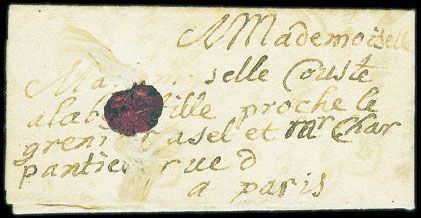 A Mademoiselle
Mademoiselle Couste
proche le
gren asel et mr Char
pantier rue d
a paris